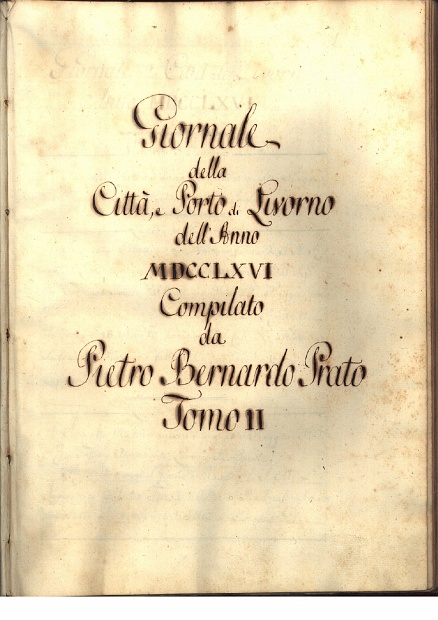 Giornale
della
Città, e Porto di Livorno
dell'Anno
MDCCLXVI
Compilato
da
Pietro Bernardo Prato
Tomo II